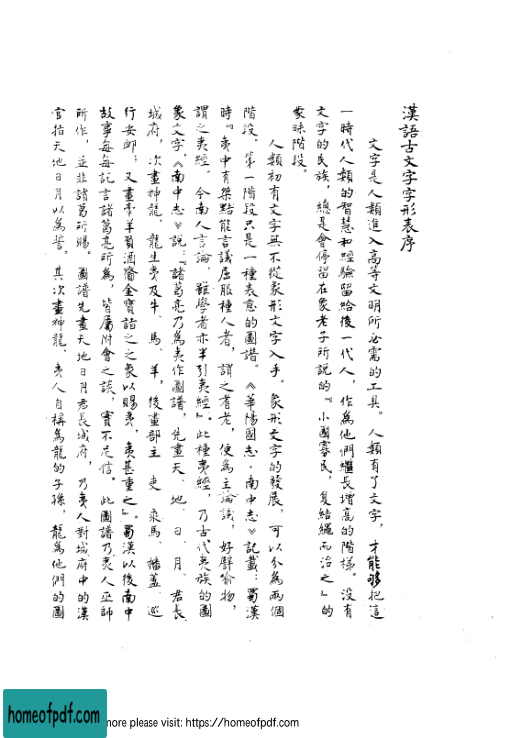 漢語古文字字形表序
文字是人類進入高等文明所必需的工具。人類有了文字，才能够把這
一時代人類的智慧和經驗留給後一代人，作爲他們繼長增高的階梯。没有
文字的民族，總是會停留在象老子所説的『小國寡民，复結繩而治之』的
蒙昧階段。
人類初有文字無不從象形文字入手。象形文字的發展，可以分爲兩個
階段。第一階段只是一種表意的圖譜。《華陽國志·南中志》記載：蜀漢
時『夷中有桀黠能言議屈服種人者，謂之耆老，便爲主論議，好譬喻物，
謂之夷經。今南人言論，雖學者亦半引夷經』。此種夷經，乃古代夷族的圖
象文字，《南中志》説：『諸葛亮乃爲夷作圖譜，先畫天、地、日、月、君長、
城府，次畫神龍，龍生夷及牛、馬、羊，後畫部主吏乘馬幡蓋、巡
行安卹；又畫牽羊負酒齎金寶詣之之象以賜夷，夷甚重之』。蜀漢以後南中
故事每每託言諸葛亮所爲，皆屬附會之談，實不足信。此圖譜乃夷人巫師
所作，並非諸葛所賜。圖譜先畫天地日月君長城府，乃夷人對城府中的漢
官指天地日月以爲誓。其次畫神龍，夷人自稱爲龍的子孫，龍爲他們的圖
homeofpdf.com
more please visit: https://homeofpdf.com